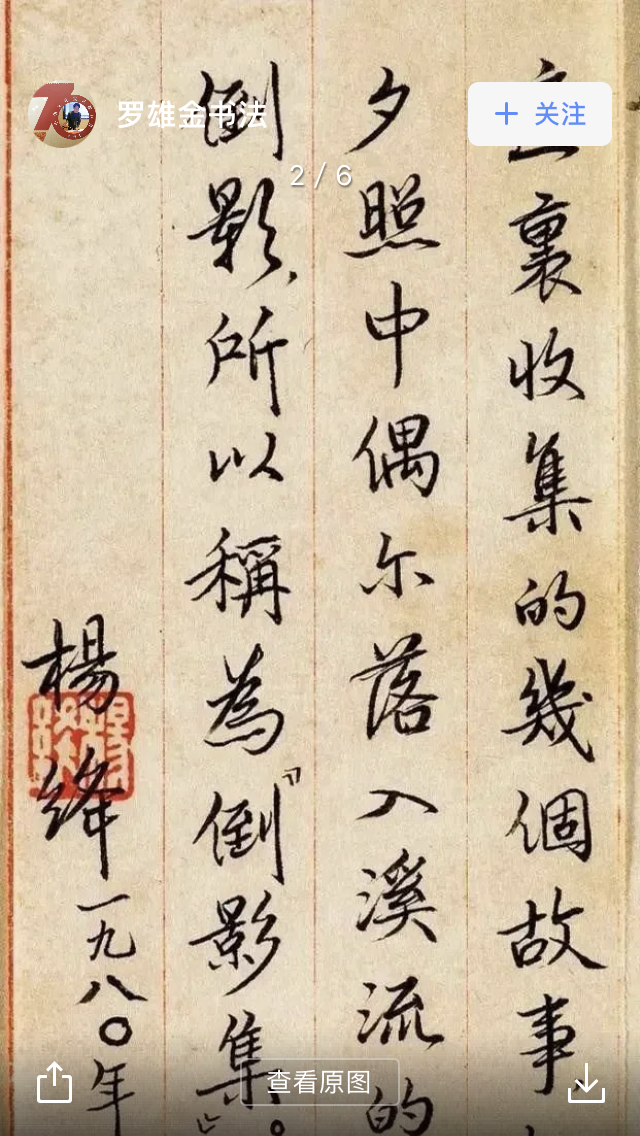 罗雄金书法
+ 关注
2 / 6
裏收集的幾個故事,
夕照中偶尔落入溪流的
倒影,所以稱為『倒影集』。
楊絳
一九八〇年
查看原图